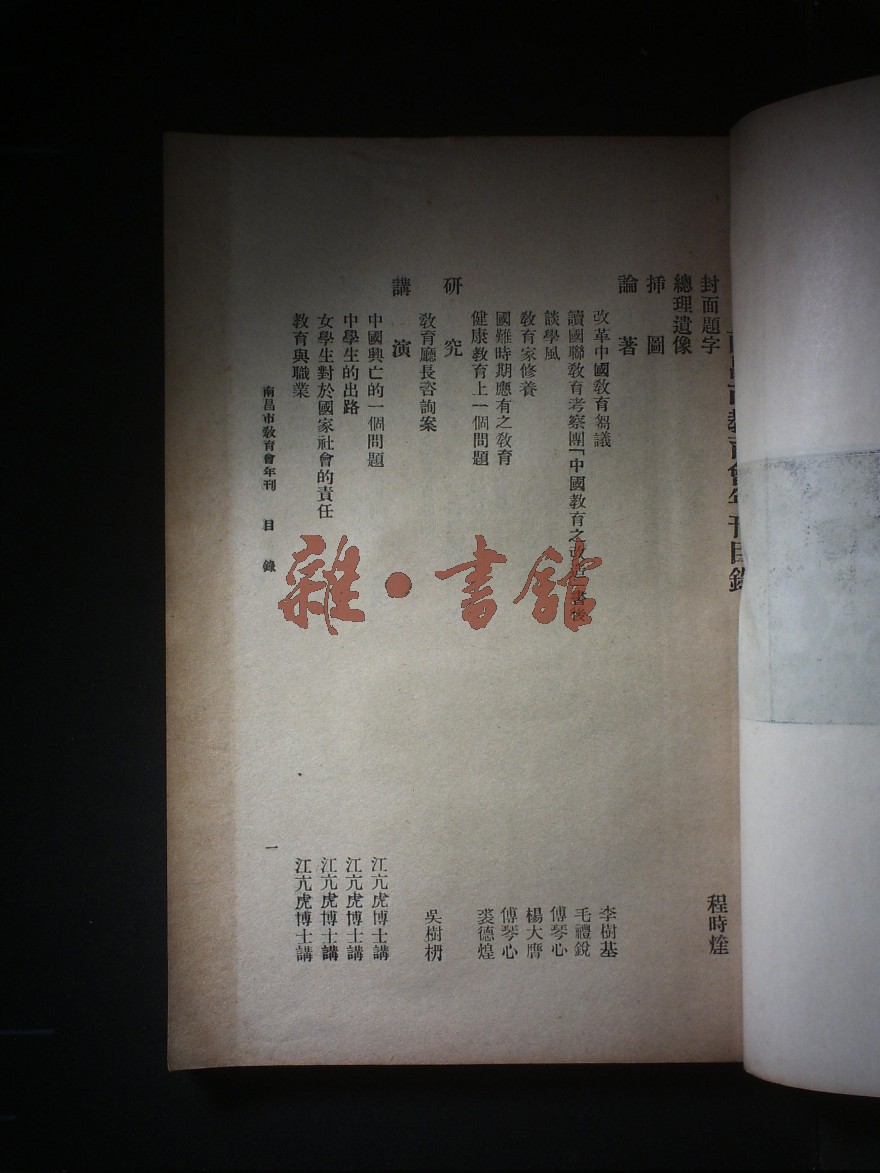 教育會年刊目錄
封面題字 程時煃
總理遺像
插圖
論著
改革中國教育芻議 李樹基
讀國聯教育考察團「中國教育之改造」書後 毛禮銳
談學風 傅琴心
教育家修養 楊大膺
國難時期應有之教育 傅琴心
健康教育上一個問題 裘德煌
研究
教育廳長咨詢案 吳樹枬
講演
中國興亡的一個問題 江亢虎博士講
中學生的出路 江亢虎博士講
女學生對於國家社會的責任 江亢虎博士講
教育與職業 江亢虎博士講
南昌市教育會年刊 目錄 一
雜·書館